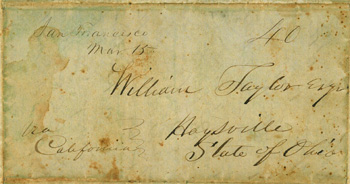 San Francisco
Mar 15
40
William Taylor Esqr
Haysville
State of Ohio
Via
California